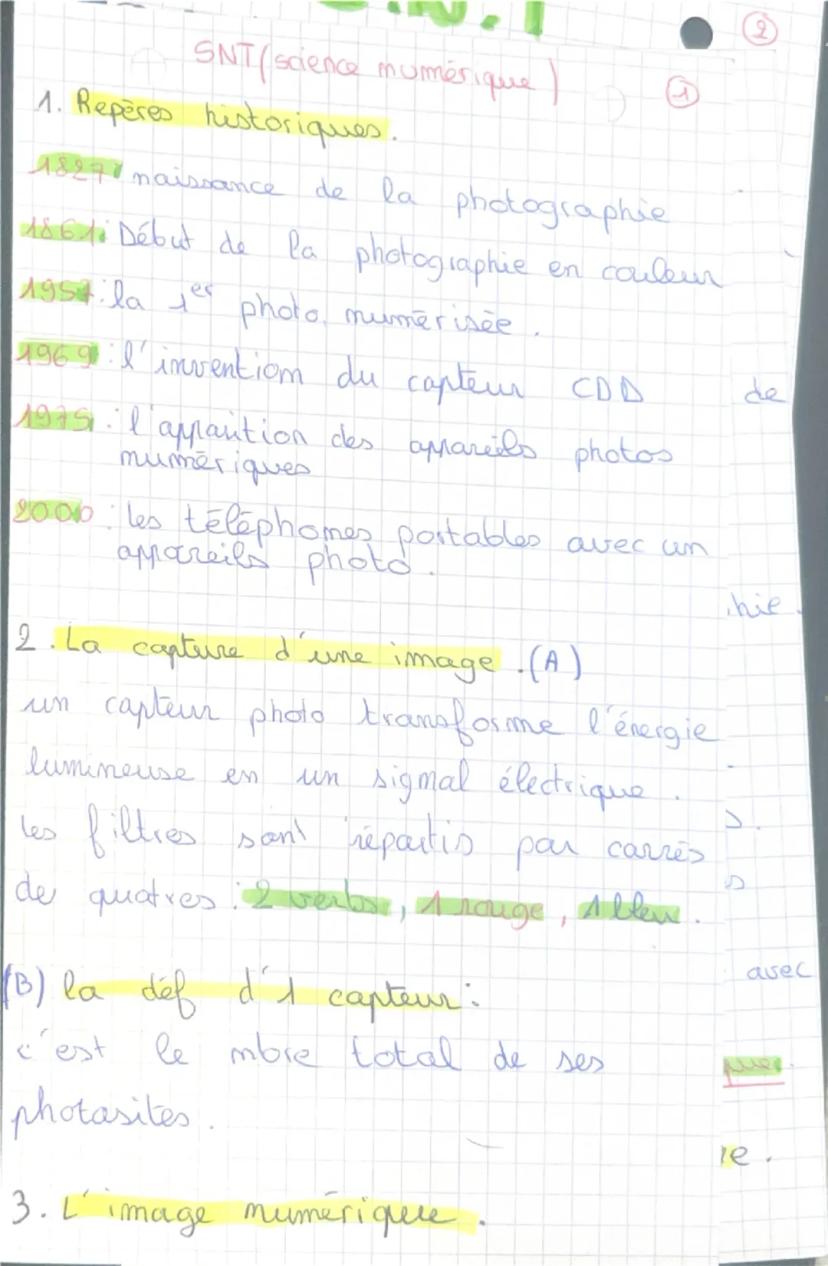 2
SNT (science numérique)
1
1. Repères historiques.
1827: naissance de la photographie
1861: Début de la photographie en couleur
1957: la 1er photo numérisée.
1969: l'invention du capteur CDD
de
1975: l'apparition des appareils photos
numériques
2000: les téléphones portables avec un
appareils photo.
hie.
2. La capture d'une image. (A)
un capteur photo transforme l'énergie
lumineuse en un signal électrique.
les filtres sont répartis par carrés
s.
de quatres: 2 verts, 1 rouge, 1 bleu.
s
avec
(B) la déf d'1 capteur:
c'est le nbre total de ses
photosites.
re.
3. L'image numérique.